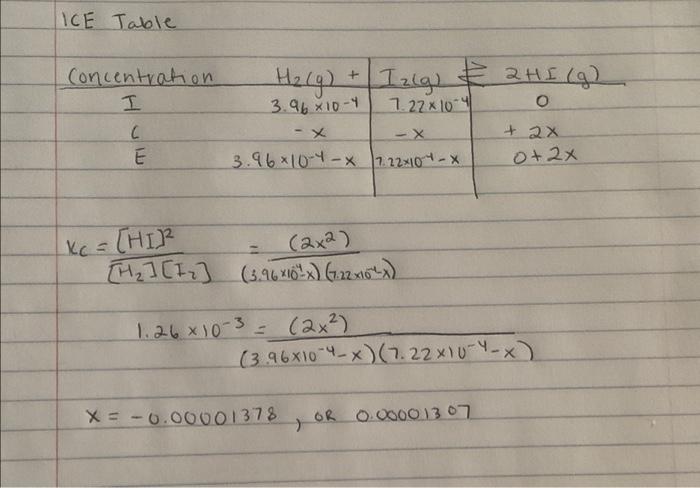 ICE Table
Concentration H₂(g) + I₂(g) ⇌ 2HI(g)
I 3.96 × 10⁻⁴ 7.22 × 10⁻⁴ 0
C - x - x + 2x
E 3.96 × 10⁻⁴ - x 7.22 × 10⁻⁴ - x 0 + 2x
Kc = [HI]² / [H₂][I₂] = (2x²) / (3.96 × 10⁻⁴ - x)(7.22 × 10⁻⁴ - x)
1.26 × 10⁻³ = (2x²) / (3.96 × 10⁻⁴ - x)(7.22 × 10⁻⁴ - x)
x = -0.00001378, OR 0.00001307